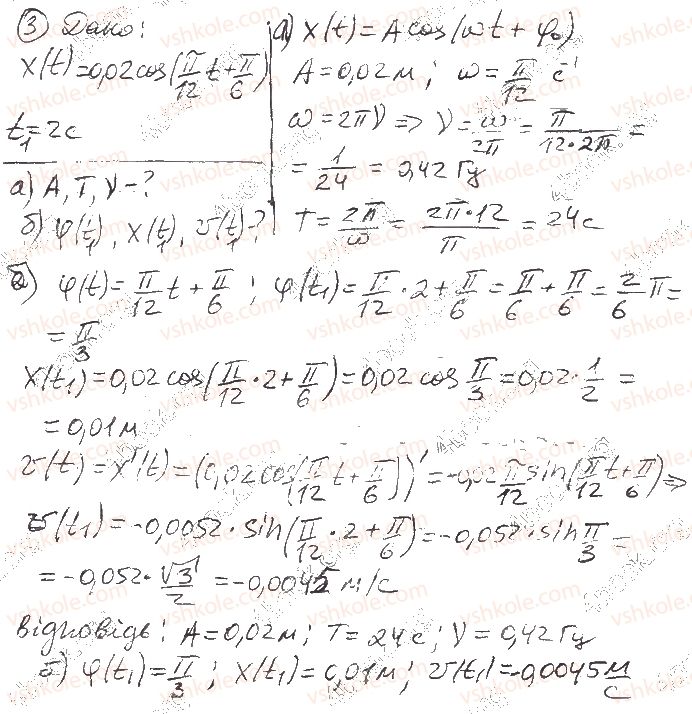 ③ Дано:
x(t)=0,02cos(π/12 t+π/6)
t₁=2c
а) A, T, ν-?
б) φ(t₁), x(t₁), v(t₁)-?
а) x(t)=A cos(ωt+φ₀)
A=0,02м; ω=π/12 c⁻¹
ω=2πν ⇒ ν=ω/2π=π/(12·2π)=
=1/24=0,42 Гц
T=2π/ω=2π·12/π=24c
б) φ(t)=π/12 t+π/6; φ(t₁)=π/12·2+π/6=π/6+π/6=2/6 π=
=π/3
x(t₁)=0,02cos(π/12·2+π/6)=0,02cos π/3=0,02·1/2=
=0,01м
v(t)=x'(t)=(0,02cos(π/12 t+π/6))'=-0,02 π/12 sin(π/12 t+π/6)⇒
v(t₁)=-0,0052·sin(π/12·2+π/6)=-0,052·sin π/3=
=-0,052·√3/2=-0,0045 м/с
Відповідь: A=0,02м; T=24c; ν=0,42Гц
б) φ(t₁)=π/3; x(t₁)=0,01м; v(t₁)=-0,0045 м/с
vshkole.com